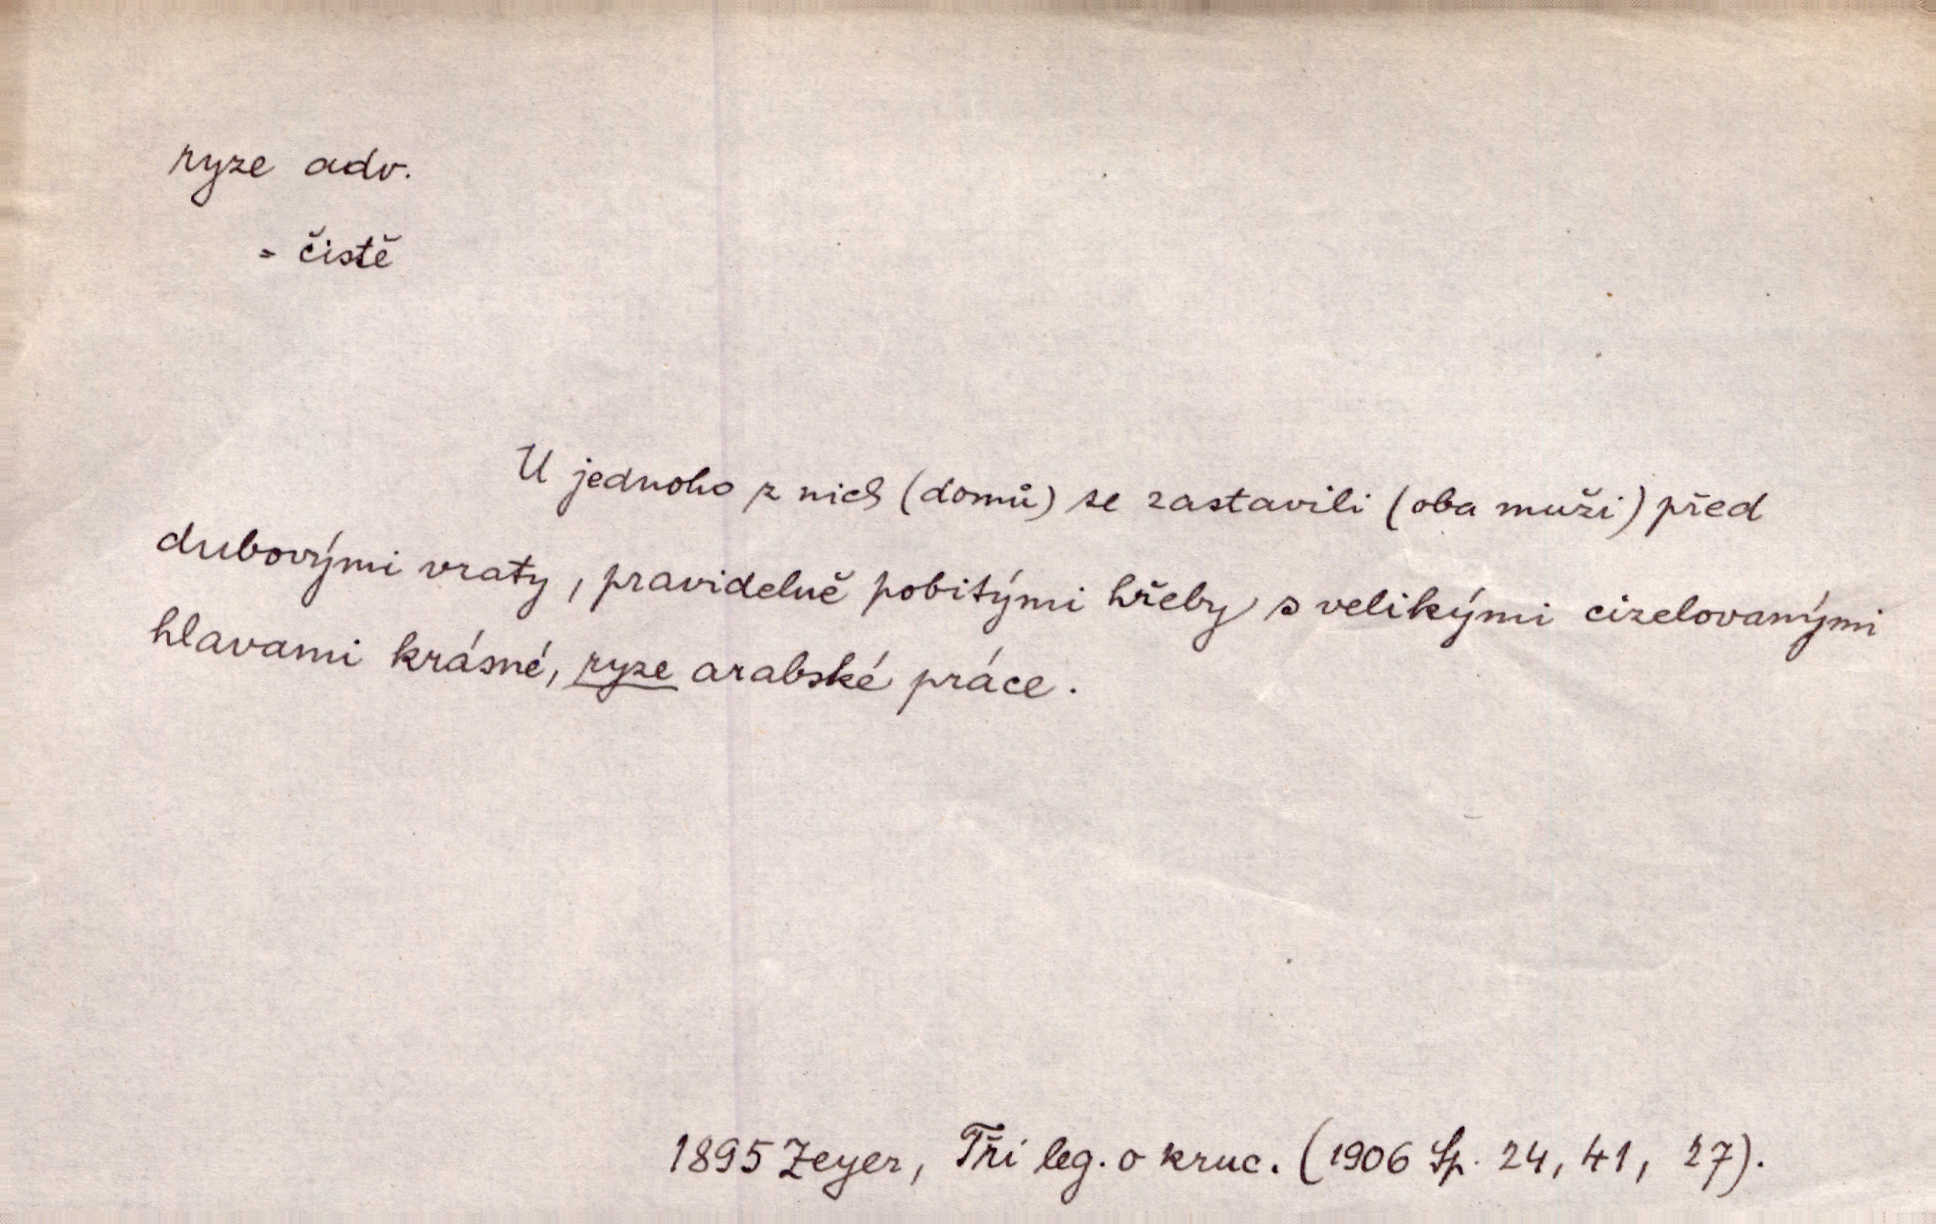 ryze adv.
= čistě
U jednoho z nich (domů) se zastavili (oba muži) před
dubovými vraty, pravidelně pobitými hřeby s velikými cizelovanými
hlavami krásné, ryze arabské práce.
1895 Zeyer, Tři leg. o kruc. (1906 Sp. 24, 41, 27).